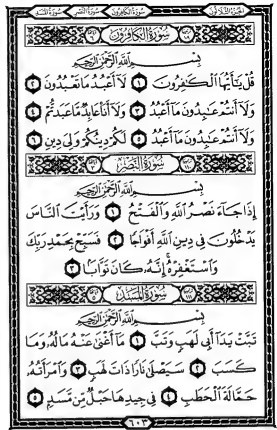 سُورَةُ المَسَد سُورَةُ النَّصْر سُورَةُ الكَافِرُون الجُزْءُ الثَّلَاثُونَ
سُورَةُ الْكَافِرُونَ
بِسْمِ اللَّهِ الرَّحْمَٰنِ الرَّحِيمِ
قُلْ يَا أَيُّهَا الْكَافِرُونَ ١ لَا أَعْبُدُ مَا تَعْبُدُونَ ٢
وَلَا أَنتُمْ عَابِدُونَ مَا أَعْبُدُ ٣ وَلَا أَنَا عَابِدٌ مَّا عَبَدتُّمْ ٤
وَلَا أَنتُمْ عَابِدُونَ مَا أَعْبُدُ ٥ لَكُمْ دِينُكُمْ وَلِيَ دِينِ ٦
سُورَةُ النَّصْرِ
بِسْمِ اللَّهِ الرَّحْمَٰنِ الرَّحِيمِ
إِذَا جَاءَ نَصْرُ اللَّهِ وَالْفَتْحُ ١ وَرَأَيْتَ النَّاسَ
يَدْخُلُونَ فِي دِينِ اللَّهِ أَفْوَاجًا ٢ فَسَبِّحْ بِحَمْدِ رَبِّكَ
وَاسْتَغْفِرْهُ إِنَّهُ كَانَ تَوَّابًا ٣
سُورَةُ المَسَدِ
بِسْمِ اللَّهِ الرَّحْمَٰنِ الرَّحِيمِ
تَبَّتْ يَدَا أَبِي لَهَبٍ وَتَبَّ ١ مَا أَغْنَىٰ عَنْهُ مَالُهُ وَمَا
كَسَبَ ٢ سَيَصْلَىٰ نَارًا ذَاتَ لَهَبٍ ٣ وَامْرَأَتُهُ
حَمَّالَةَ الْحَطَبِ ٤ فِي جِيدِهَا حَبْلٌ مِّن مَّسَدٍ ٥
٦٠٣